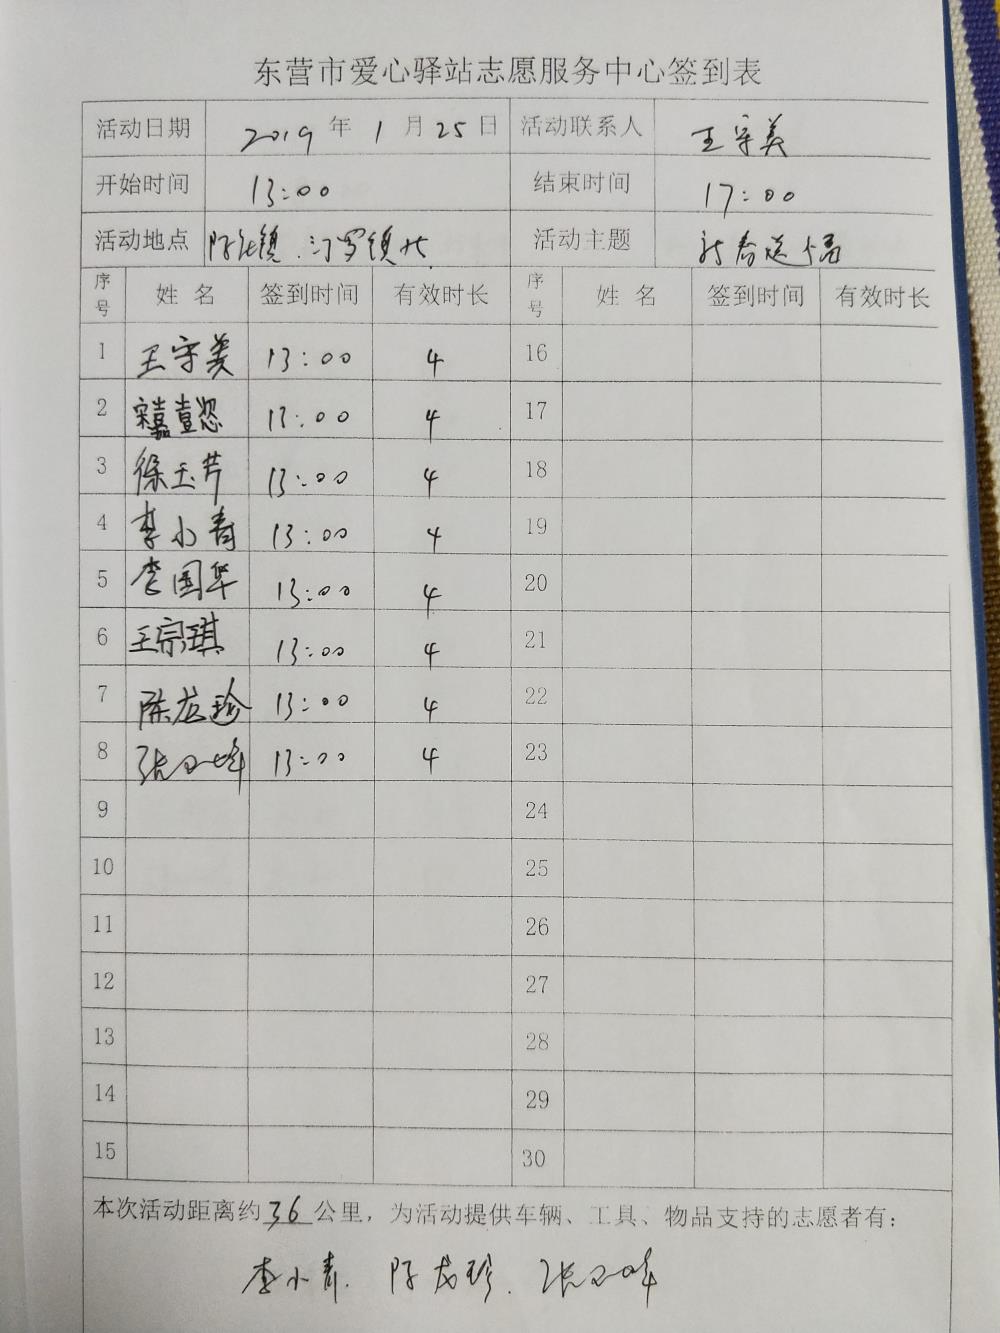 东营市爱心驿站志愿服务中心签到表
活动日期 2019 年 1 月 25 日 活动联系人 王守美
开始时间 13:00 结束时间 17:00
活动地点 活动主题 新春送福
序号 姓 名 签到时间 有效时长 序号 姓 名 签到时间 有效时长
1 王守美 13:00 4 16
2 13:00 4 17
3 徐玉芹 13:00 4 18
4 李小青 13:00 4 19
5 李国华 13:00 4 20
6 王宗琪 13:00 4 21
7 陈 珍 13:00 4 22
8 张 峰 13:00 4 23
9 24
10 25
11 26
12 27
13 28
14 29
15 30
本次活动距离约36公里，为活动提供车辆、工具、物品支持的志愿者有：
李小青. 陈 珍. 张 峰